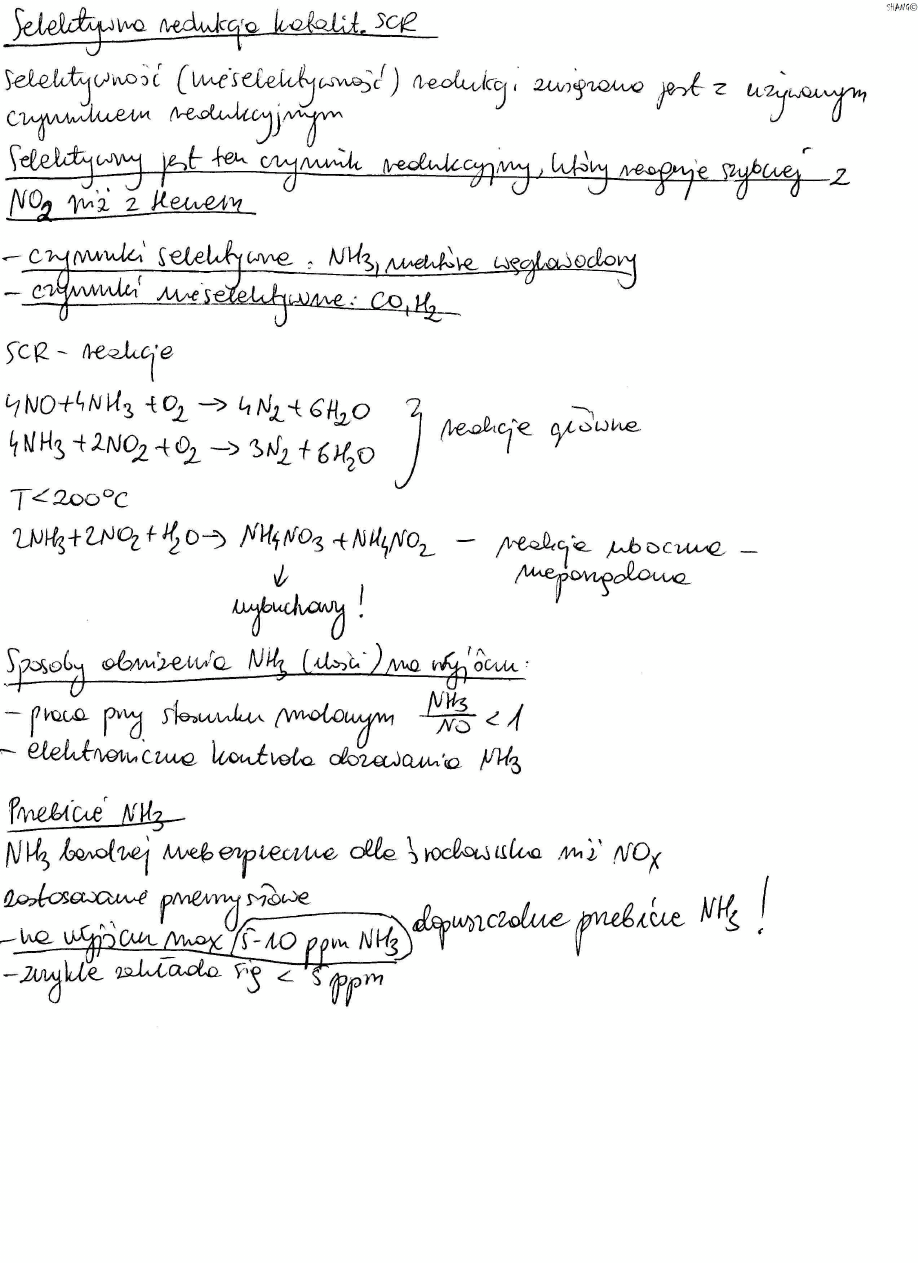 SHANG©
Selektywna redukcja katalit. SCR
Selektywność (nieselektywność) redukcji związana jest z używanym
czynnikiem redukcyjnym
Selektywny jest ten czynnik redukcyjny, który reaguje szybciej z
NO2 niż z tlenem
- czynniki selektywne: NH3, niektóre węglowodory
- czynniki nieselektywne: CO, H2
SCR - reakcje
4NO+4NH3+O2 → 4N2+6H2O
4NH3+2NO2+O2 → 3N2+6H2O } reakcje główne
T<200°C
2NH3+2NO2+H2O → NH4NO3+NH4NO2 - reakcje uboczna -
niepożądana
↓
wybuchowy!
Sposoby obniżenia NH3 (ilości) na wyjściu:
- praca przy stosunku molowym NH3/NO < 1
- elektroniczna kontrola dozowania NH3
Przebicie NH3
NH3 bardziej niebezpieczne dla środowiska niż NOx
zastosowanie przemysłowe
- na wyjściu max 5-10 ppm NH3 dopuszczalne przebicie NH3!
- zwykle zakłada się < 5 ppm